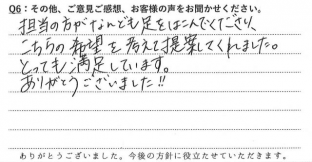 Q6：その他、ご意見ご感想、お客様の声をお聞かせください。
担当の方がなんども足をはこんでくださり、
こちらの希望を考えて提案してくれました。
とっても満足しています。
ありがとうございました!!
ありがとうございました。今後の方針に役立たせていただきます。